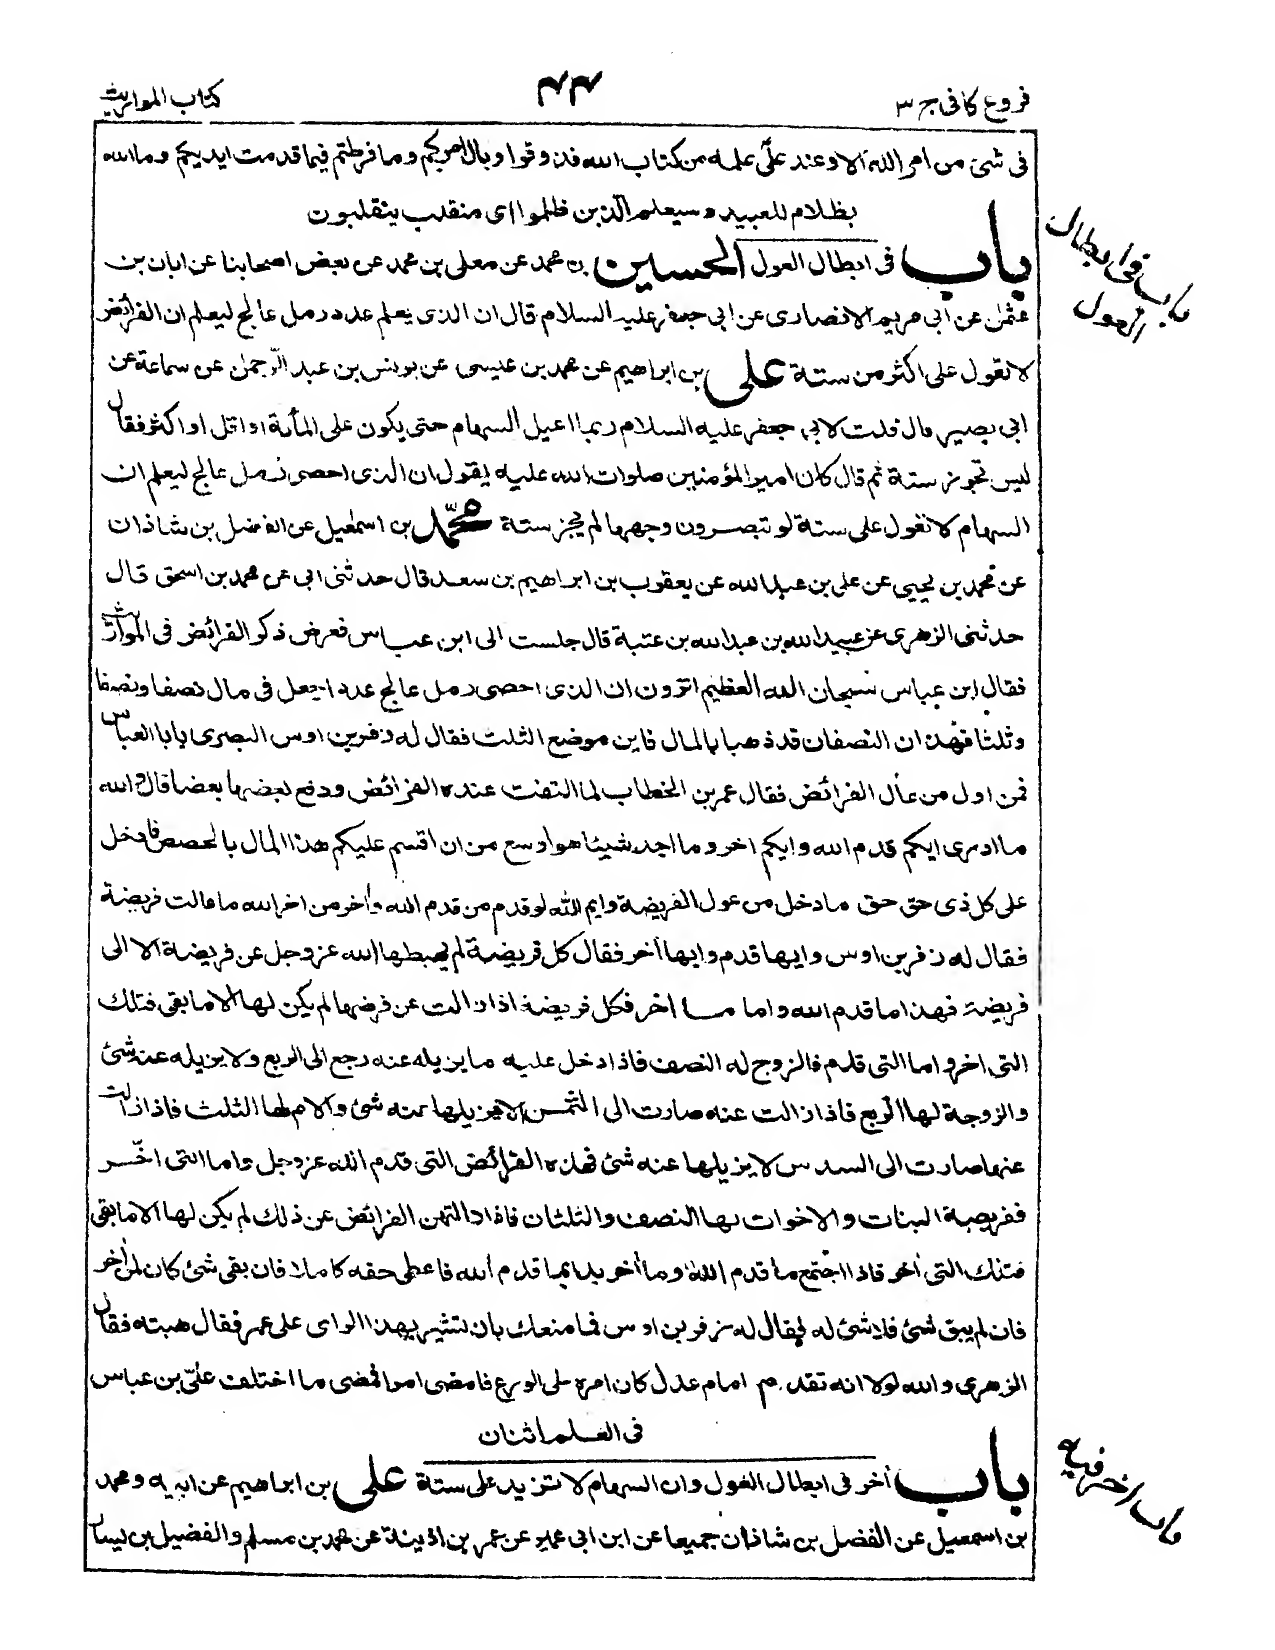 فروع كافى ج ٣
٤٤
كتاب المواريث
فى شئ من امر الله الا وعند علىّ علمه من كتاب الله فذوقوا وبال امركم وما فرطتم فيما قدمت ايديكم وما الله
بظلام للعبيد وسيعلم الّذين ظلموا اى منقلب ينقلبون
باب فى ابطال العول الحسين بن محمد عن معلى بن محمد عن بعض اصحابنا عن ابان بن
باب فى ابطال العول
عثمٰن عن ابى مريم الانصارى عن ابى جعفر عليه السلام قال ان الذى يعلم عدد رمل عالج ليعلم ان الفرائض
لا تعول على اكثر من ستة على بن ابراهيم عن محمد بن عيسى عن يونس بن عبد الرّحمٰن عن سماعة عن
ابى بصير قال قلت لابى جعفر عليه السلام ربما اعيل السهام حتى يكون على المأية او اقل او اكثر فقال
ليس تجوز ستة ثم قال كان امير المؤمنين صلوات الله عليه يقول ان الذى احصى رمل عالج ليعلم ان
السهام لا تعول على ستة لو تبصرون وجهها لم يجز ستة محمّد بن اسمٰعيل عن الفضل بن شاذان
عن محمد بن يحيى عن على بن عبد الله عن يعقوب بن ابراهيم بن سعد قال حدثنى ابى عن محمد بن اسحق قال
حدثنى الزهرى عن عبيد الله بن عبد الله بن عتبة قال جلست الى ابن عباس فعرض ذكر الفرائض فى المواريث
فقال ابن عباس سبحان الله العظيم اترون ان الذى احصى رمل عالج عددا جعل فى مال نصفا ونصفا
وثلثا فهذان النصفان قد ذهبا بالمال فاين موضع الثلث فقال له زفر بن اوس البصرى يابا العباس
فمن اول من عال الفرائض فقال عمر بن الخطاب لما التفت عنده الفرائض ودفع بعضها بعضا قال والله
ما ادرى ايكم قدم الله وايكم اخر وما اجد شيئا هو اوسع من ان اقسم عليكم هذا المال بالحصص فادخل
على كل ذى حق حق ما دخل من عول الفريضة وايم الله لو قدم من قدم الله وأخر من اخر الله ما عالت فريضة
فقال له زفر بن اوس وايها قدم وايها أخر فقال كل فريضة لم يهبطها الله عز وجل عن فريضة الا الى
فريضة فهذا ما قدم الله واما ما اخر فكل فريضة اذا زالت عن فرضها لم يكن لها الا ما بقى فتلك
التى اخر واما التى قدم فالزوج له النصف فاذا دخل عليه ما يزيله عنه رجع الى الربع ولا يزيله عنه شئ
والزوجة لها الربع فاذا زالت عنه صارت الى الثمن لا يزيلها عنه شئ والام لها الثلث فاذا زالت
عنها صارت الى السدس لا يزيلها عنه شئ فهذه الفرائض التى قدم الله عز وجل واما التى اخّر
ففريضة البنات والاخوات لها النصف والثلثان فاذا ازالتهن الفرائض عن ذلك لم يكن لها الا ما بقى
فتلك التى أخر فاذا اجتمع ما قدم الله وما أخر بدئ بما قدم الله فاعطى حقه كاملا فان بقى شئ كان لمن أخر
فان لم يبق شئ فلا شئ له فقال له زفر بن اوس فما منعك بان تشير بهذا الراى على عمر فقال هبته فقال
الزهرى والله لولا انه تقدمه امام عدل كان امره على الورع فامضى امرا فمضى ما اختلف على بن عباس
فى العلم اثنان
باب أخر فى ابطال العول وان السهام لا تزيد على ستة على بن ابراهيم عن ابيه ومحمد
باب اخر فيه
بن اسمعيل عن الفضل بن شاذان جميعا عن ابن ابى عمير عن عمر بن اذينة عن محمد بن مسلم والفضيل بن يسار